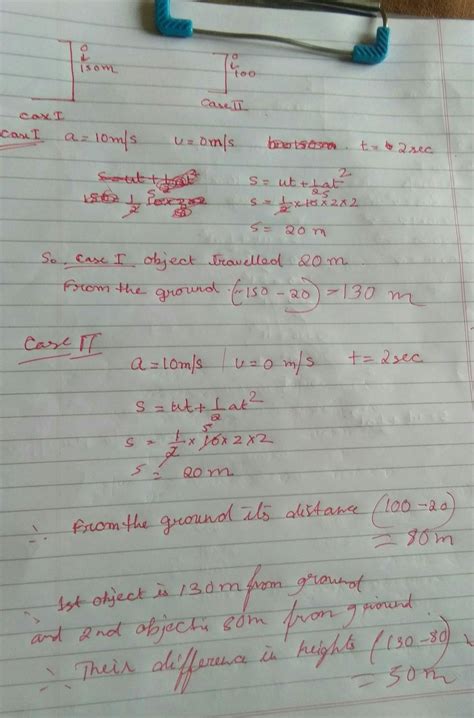 0
↓
150m
0
↓
100
Case I
Case II
Case I a = 10m/s u = 0m/s t = 2sec
s = ut + 1/2 at²
s = ut + 1/2 at²
150 = 1/2 10×2×2
s = 1/2 × 10 × 2 × 2
5
s = 20 m
So, Case I object travelled 20 m
From the ground (150 - 20) = 130 m
Case II
a = 10m/s | u = 0 m/s t = 2sec
s = ut + 1/2 at²
5
s = 1/2 × 10 × 2 × 2
s = 20 m
∴ From the ground its distance (100 - 20)
= 80 m
∴ 1st object is 130m from ground
and 2nd object is 80m from ground
∴ Their difference in heights (130 - 80)
= 50m